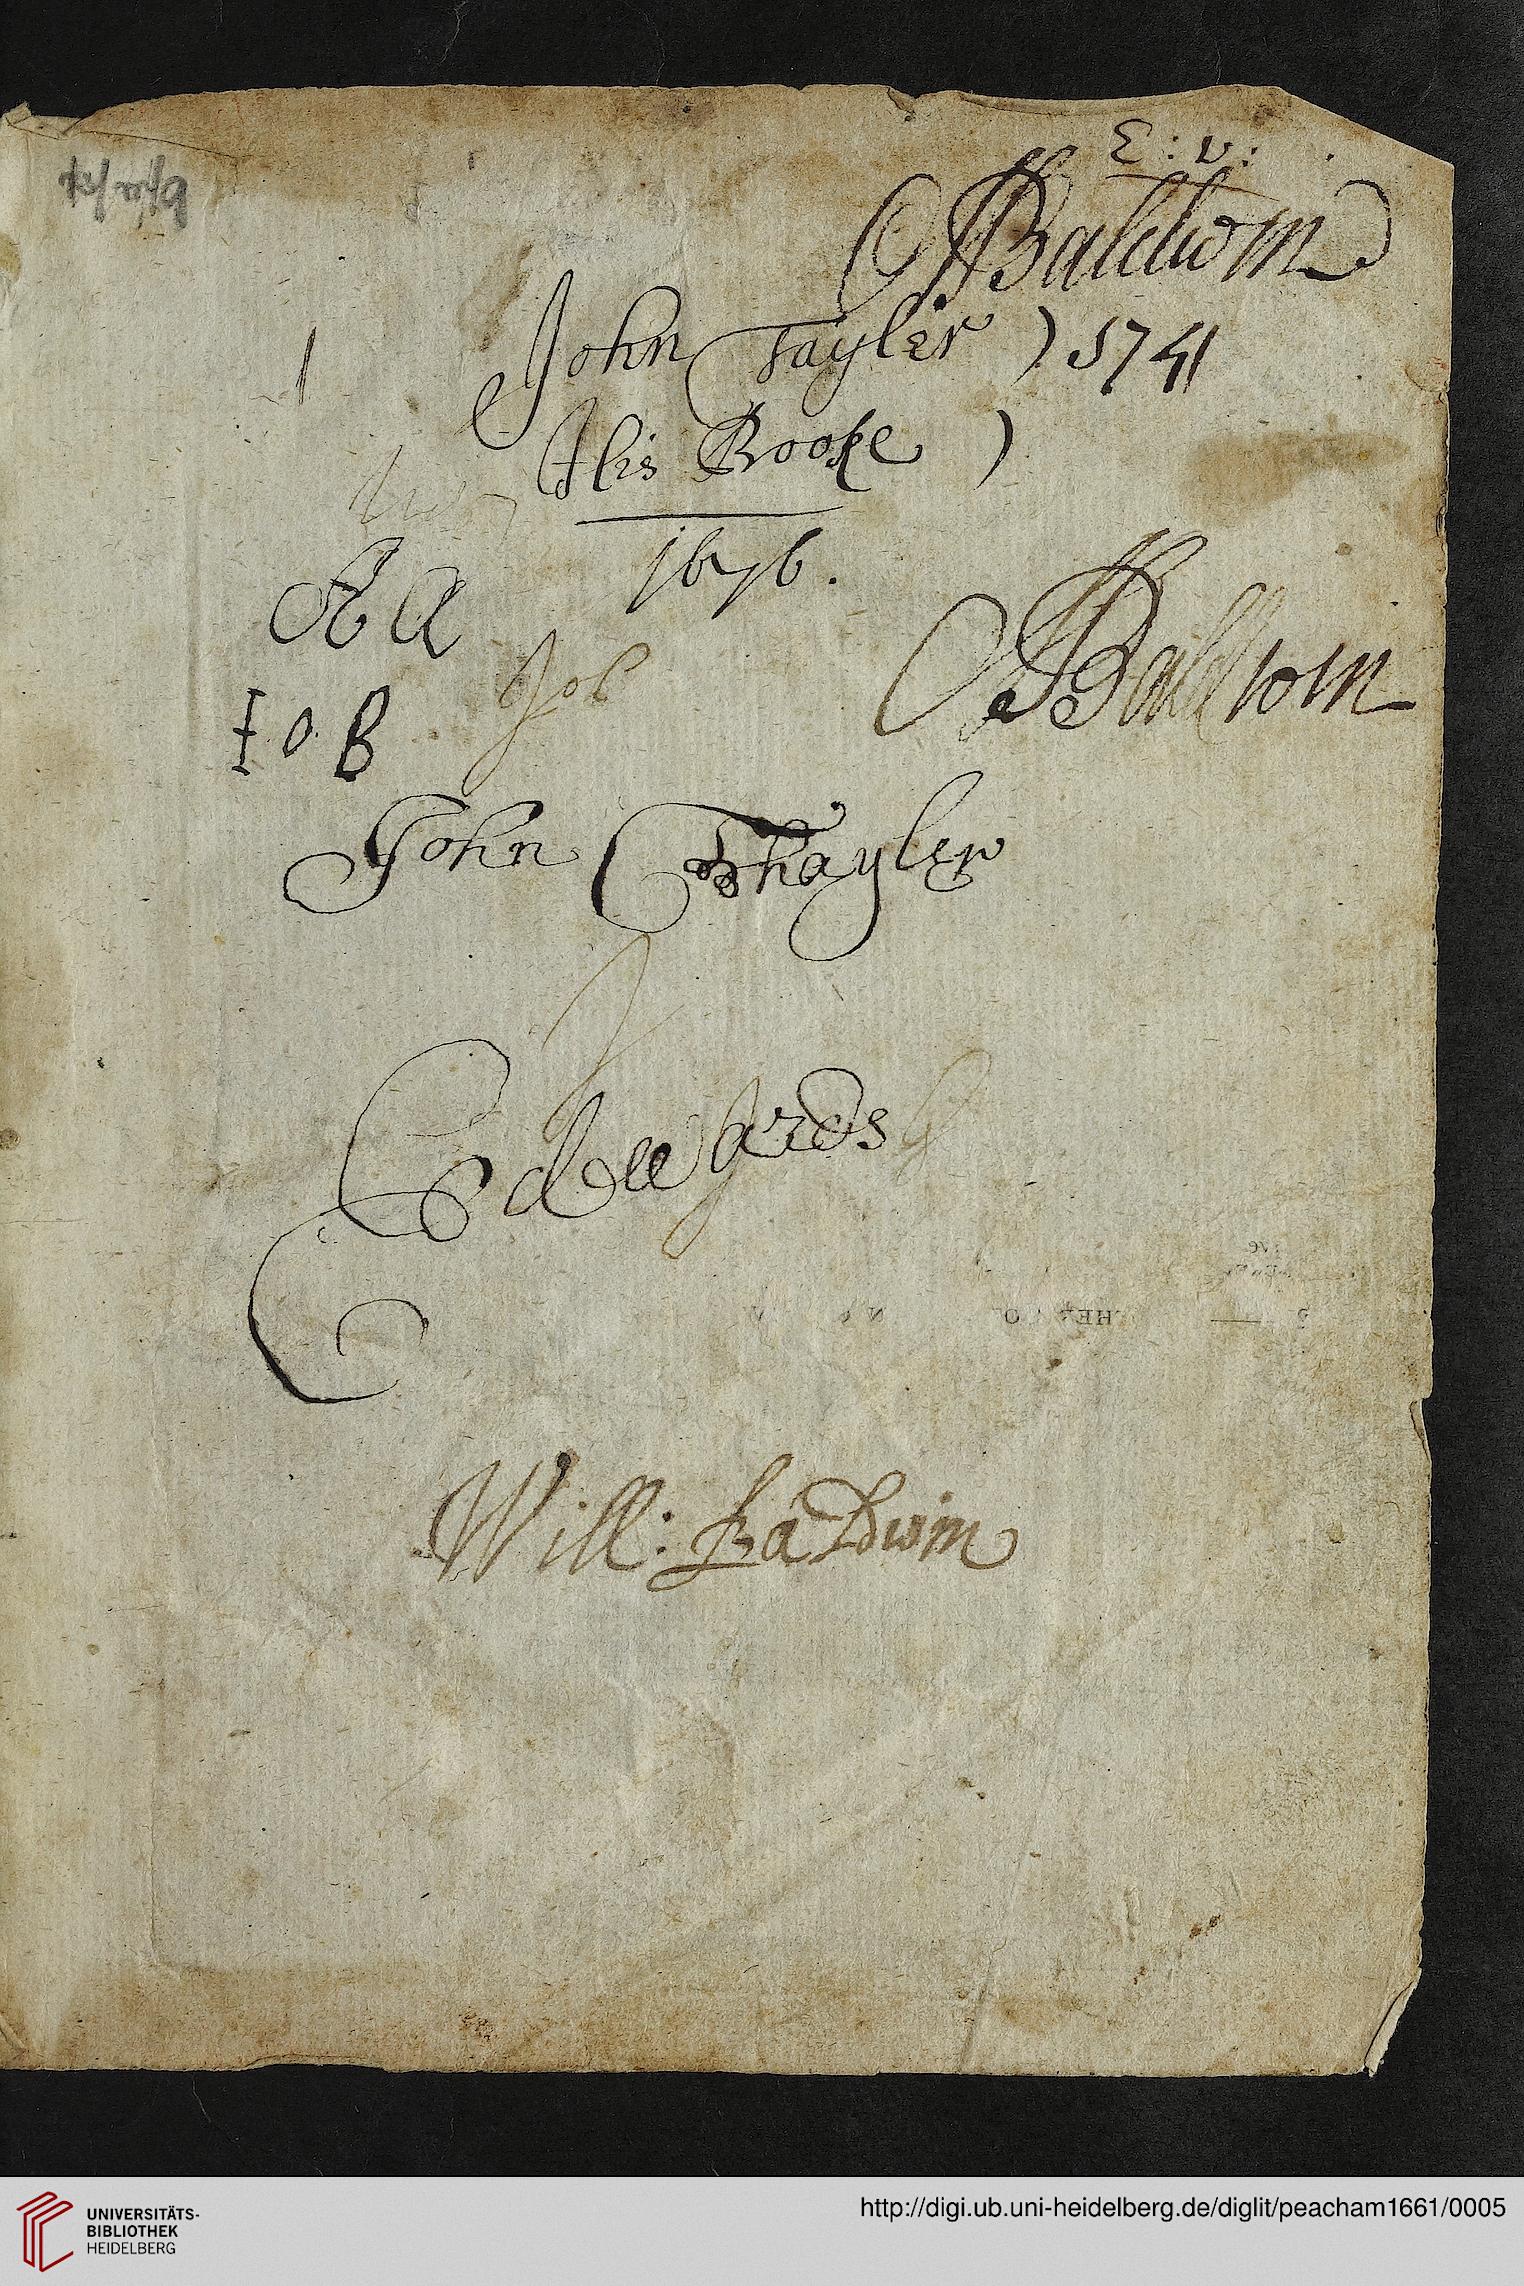 E : v :
Baldwin
John Tayler ) 1741
His Booke )
1676.
A a
Job
Baldwin
I O B
John Thayler
Edwards
Will: Baldwin
UNIVERSITÄTS-
BIBLIOTHEK
HEIDELBERG
http://digi.ub.uni-heidelberg.de/diglit/peacham1661/0005